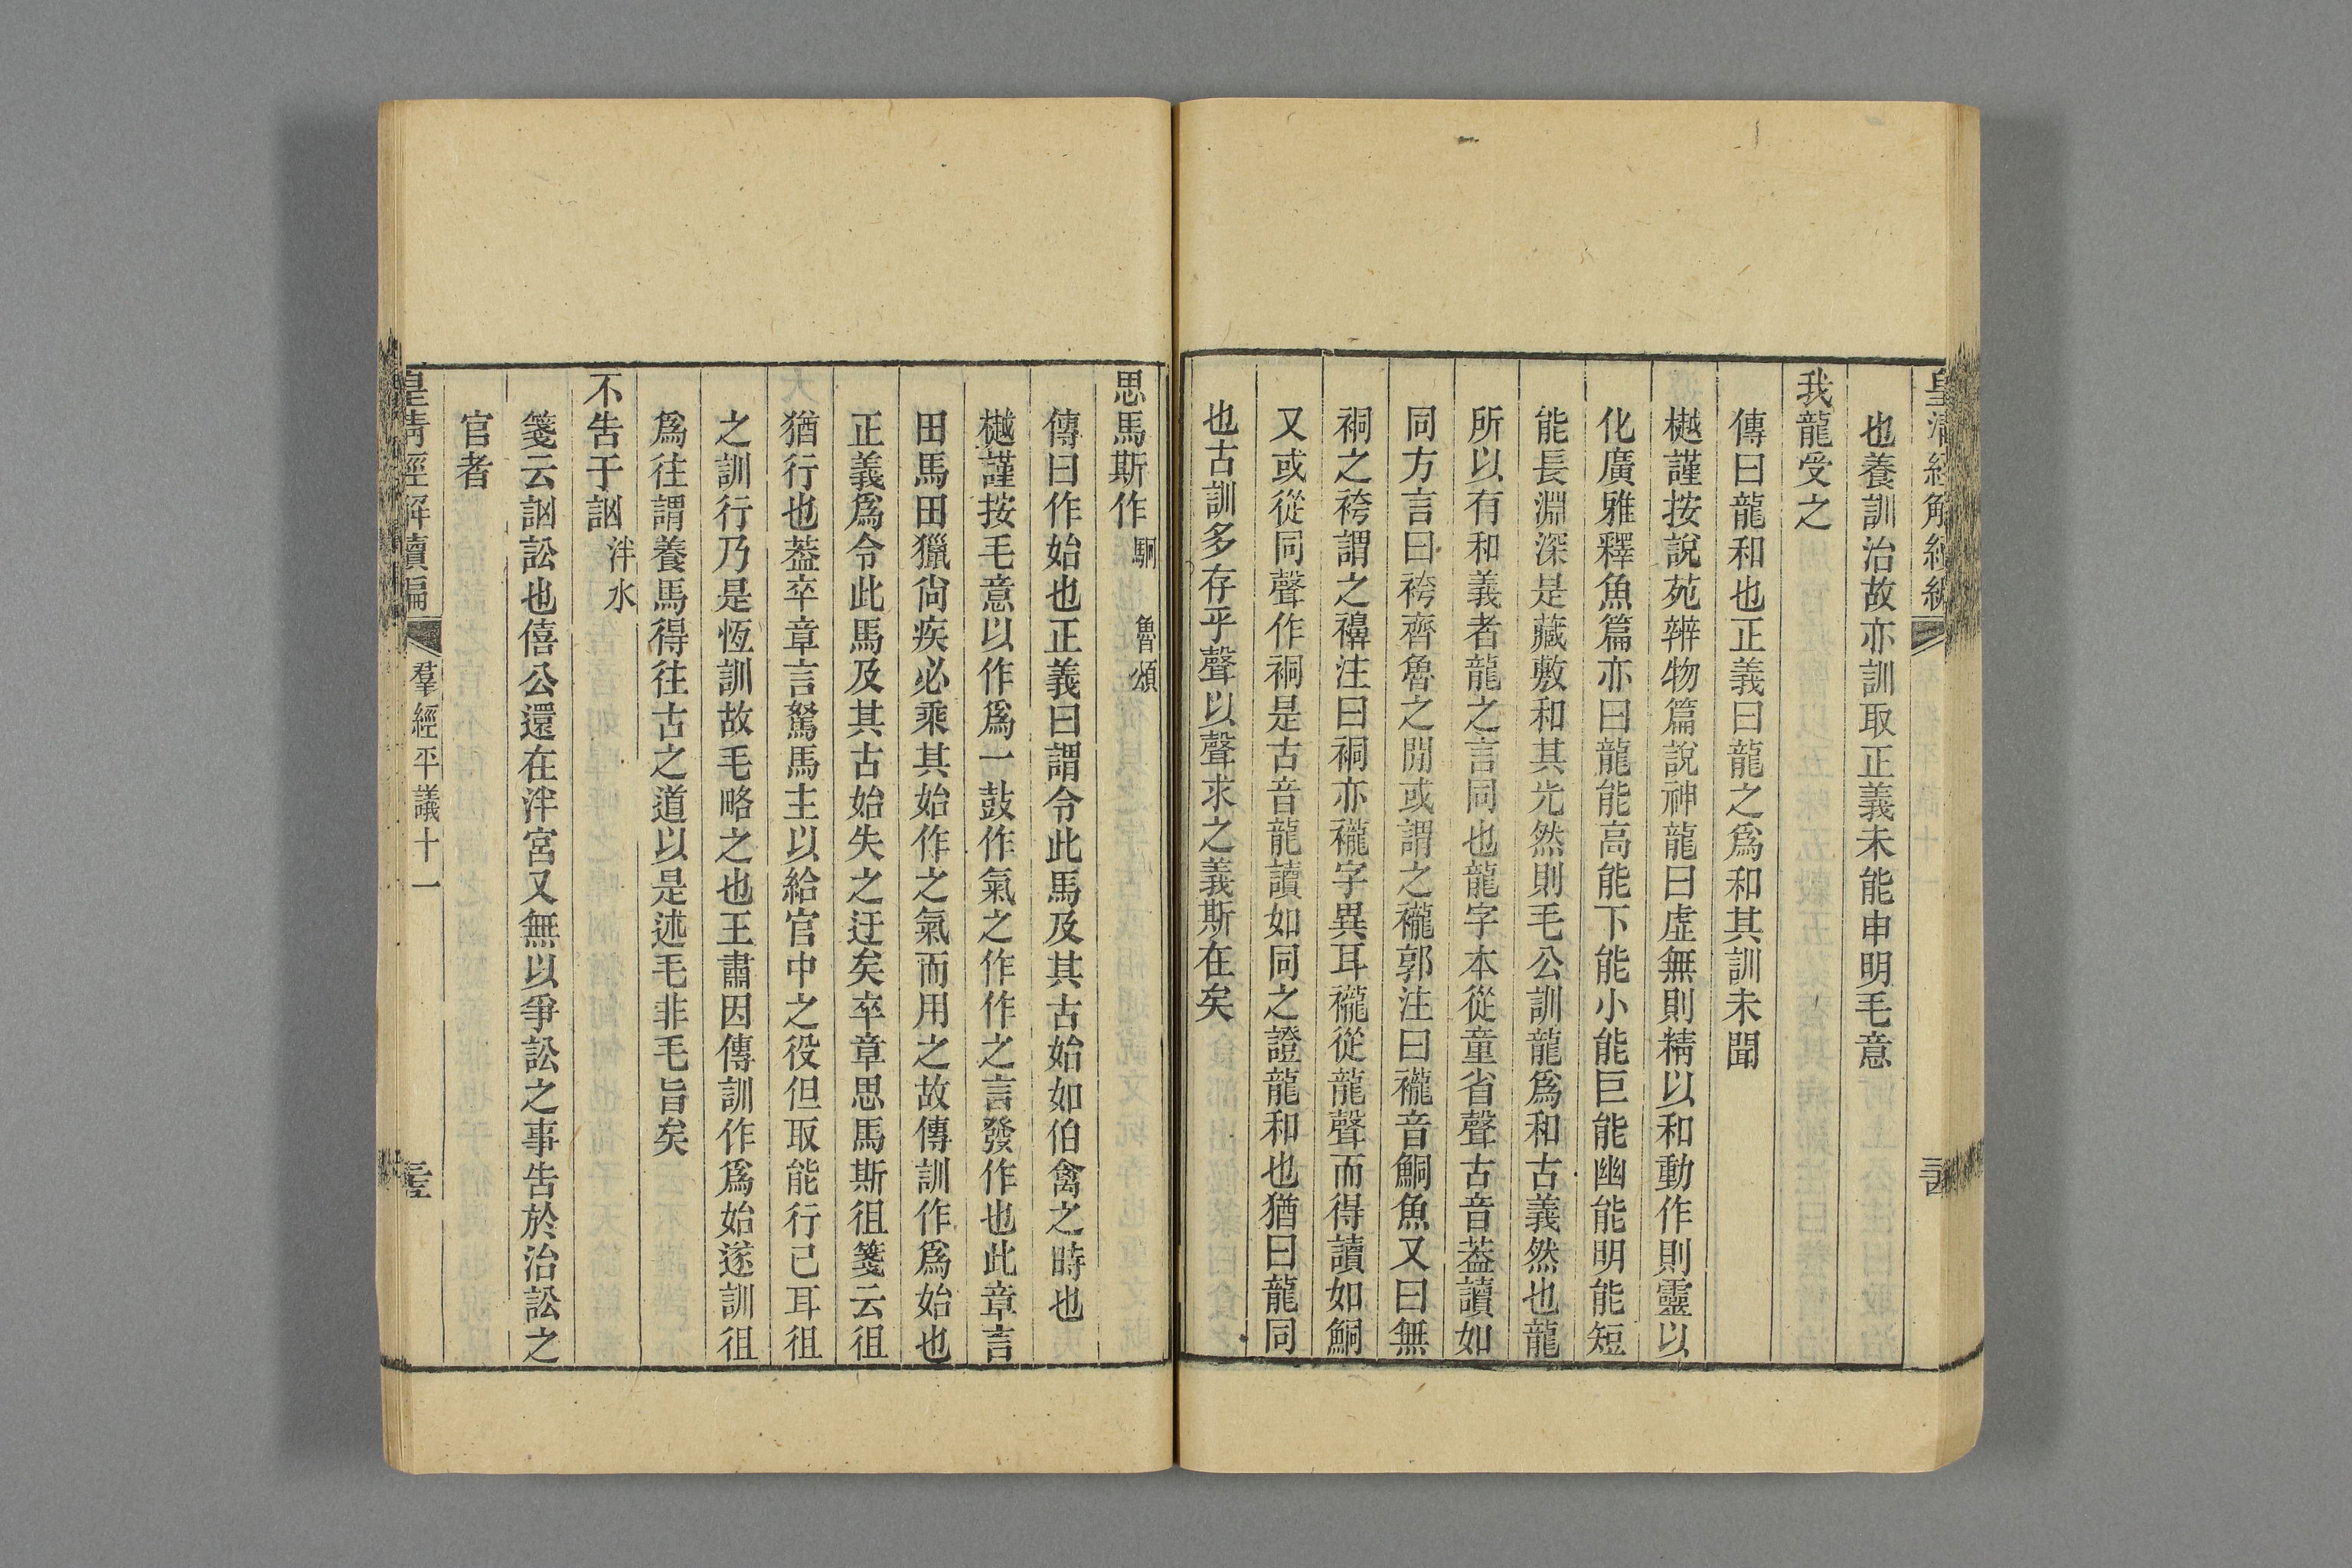 也養訓治故亦訓取正義未能申明毛意
我龍受之
傳曰龍和也正義曰龍之爲和其訓未聞
樾謹按說苑辨物篇說神龍曰虛無則精以和動作則靈以
化廣雅釋魚篇亦曰龍能高能下能小能巨能幽能明能短
能長淵深是藏敷和其光然則毛公訓龍爲和古義然也龍
所以有和義者龍之言同也龍字本從童省聲古音葢讀如
同方言曰袴齊魯之閒或謂之襱郭注曰襱音鮦魚又曰無
裥之袴謂之襣注曰裥亦襱字異耳襱從龍聲而得讀如鮦
又或從同聲作裥是古音龍讀如同之證龍和也猶曰龍同
也古訓多存乎聲以聲求之義斯在矣
思馬斯作 駉 魯頌
傳曰作始也正義曰謂令此馬及其古始如伯禽之時也
樾謹按毛意以作爲一鼓作氣之作作之言發作也此章言
田馬田獵尙疾必乘其始作之氣而用之故傳訓作爲始也
正義爲令此馬及其古始失之迂矣卒章思馬斯徂箋云徂
猶行也葢卒章言駑馬主以給官中之役但取能行已耳徂
之訓行乃是恆訓故毛略之也王肅因傳訓作爲始遂訓徂
爲往謂養馬得往古之道以是述毛非毛旨矣
不告于訩 泮水
箋云訩訟也僖公還在泮宮又無以爭訟之事告於治訟之
官者
皇清經解續編 羣經平議十一